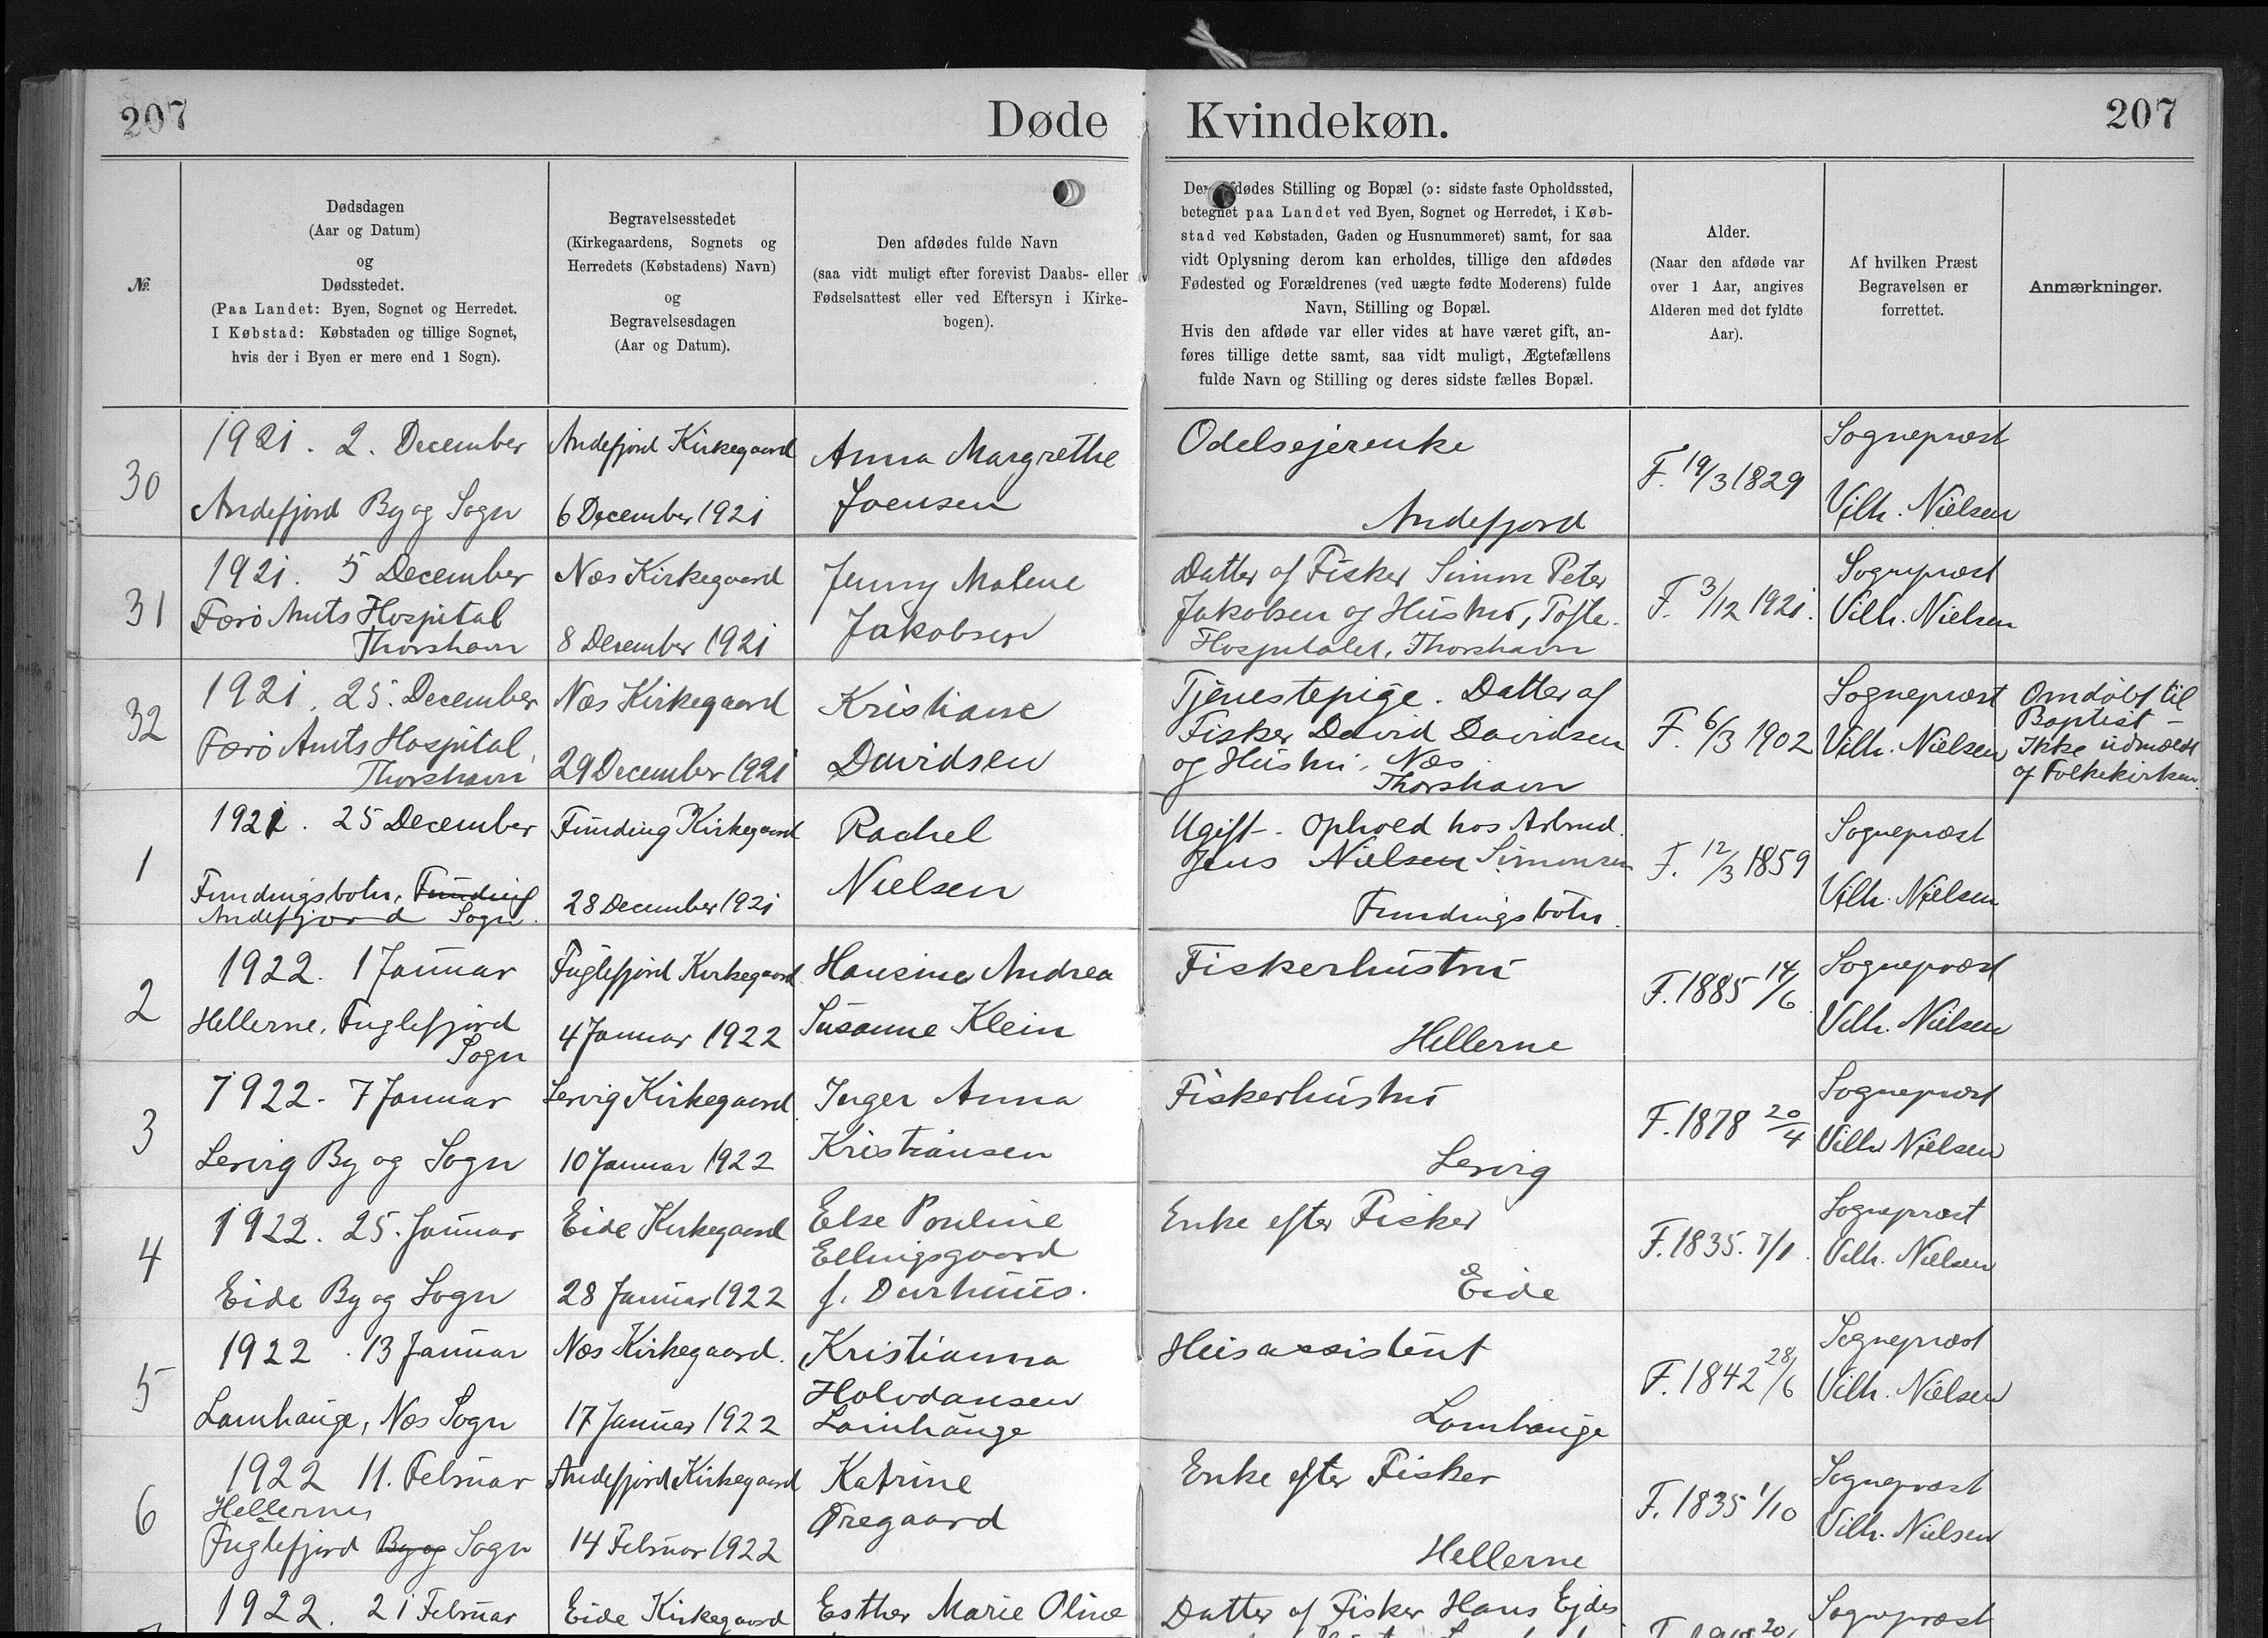 207
Døde
Kvindekøn.
207
№
Dødsdagen
(Aar og Datum)
og
Dødsstedet.
(Paa Landet: Byen, Sognet og Herredet.
I Købstad: Købstaden og tillige Sognet,
hvis der i Byen er mere end 1 Sogn).
Begravelsesstedet
(Kirkegaardens, Sognets og
Herredets (Købstadens) Navn)
og
Begravelsesdagen
(Aar og Datum).
Den afdødes fulde Navn
(saa vidt muligt efter forevist Daabs- eller
Fødselsattest eller ved Eftersyn i Kirke-
bogen).
Den afdødes Stilling og Bopæl (ɔ: sidste faste Opholdssted,
betegnet paa Landet ved Byen, Sognet og Herredet, i Køb-
stad ved Købstaden, Gaden og Husnummeret) samt, for saa
vidt Oplysning derom kan erholdes, tillige den afdødes
Fødested og Forældrenes (ved uægte fødte Moderens) fulde
Navn, Stilling og Bopæl.
Hvis den afdøde var eller vides at have været gift, an-
føres tillige dette samt, saa vidt muligt, Ægtefællens
fulde Navn og Stilling og deres sidste fælles Bopæl.
Alder.
(Naar den afdøde var
over 1 Aar, angives
Alderen med det fyldte
Aar).
Af hvilken Præst
Begravelsen er
forrettet.
Anmærkninger.
30
1921. 2. December
Andefjord By og Sogn
Andefjord Kirkegaard
6 December 1921
Anna Margrethe
Joensen
Odelsejerenke
Andefjord
F. 19/3 1829
Sognepræst
Vilh. Nielsen
31
1921. 5 December
Færø Amts Hospital
Thorshavn
Næs Kirkegaard
8 December 1921
Jenny Malene
Jakobsen
Datter af Fisker Simon Peter
Jakobsen og Hustru, Tofte.
Hospitalet, Thorshavn
F. 3/12 1921.
Sognepræst
Vilh. Nielsen
32
1921. 25. December
Færø Amts Hospital,
Thorshavn
Næs Kirkegaard
29 December 1921
Kristiane
Davidsen
Tjenestepige. Datter af
Fisker David Davidsen
og Hustru, Næs
Thorshavn
F. 6/3 1902
Sognepræst
Vilh. Nielsen
Omdøbt til
Baptist –
Ikke udmeldt
af Folkekirken.
1
1921. 25 December
Fundingsbotn, Funding
Andefjord Sogn.
Funding Kirkegaard
28 December 1921
Rachel
Nielsen
Ugift – Ophold hos Arbmd.
Jens Nielsen Simonsen
Fundingsbotn.
F. 12/3 1859
Sognepræst
Vilh. Nielsen
2
1922. 1 Januar
Hellerne, Fuglefjord
Sogn
Fuglefjord Kirkegaard
4 Januar 1922
Hansine Andrea
Susanne Klein
Fiskerhustru
Hellerne
F. 1885 14/6
Sognepræst
Vilh. Nielsen
3
1922. 7 Januar
Lervig By og Sogn
Lervig Kirkegaard
10 Januar 1922
Inger Anna
Kristiansen
Fiskerhustru
Lervig
F. 1878 20/4
Sognepræst
Vilh. Nielsen
4
1922. 25. Januar
Eide By og Sogn
Eide Kirkegaard
28 Januar 1922
Else Pouline
Ellingsgaard
f. Durhuus.
Enke efter Fisker
Eide
F. 1835. 7/1.
Sognepræst
Vilh. Nielsen
5
1922. 13 Januar
Lamhauge, Næs Sogn
Næs Kirkegaard.
17 Januar 1922
Kristianna
Holvdansen
Lamhauge
Husassistent
Lamhauge
F. 1842 28/6
Sognepræst
Vilh. Nielsen
6
1922 11. Februar
Hellerne,
Fuglefjord By og Sogn
Andefjord Kirkegaard
14 Februar 1922
Katrine
Øregaard
Enke efter Fisker
Hellerne
F. 1835 1/10
Sognepræst
Vilh. Nielsen
1922. 21 Februar
Eide Kirkegaard
Esther Marie Oline
Datter af Fisker Hans Ejdes
Sognepræst